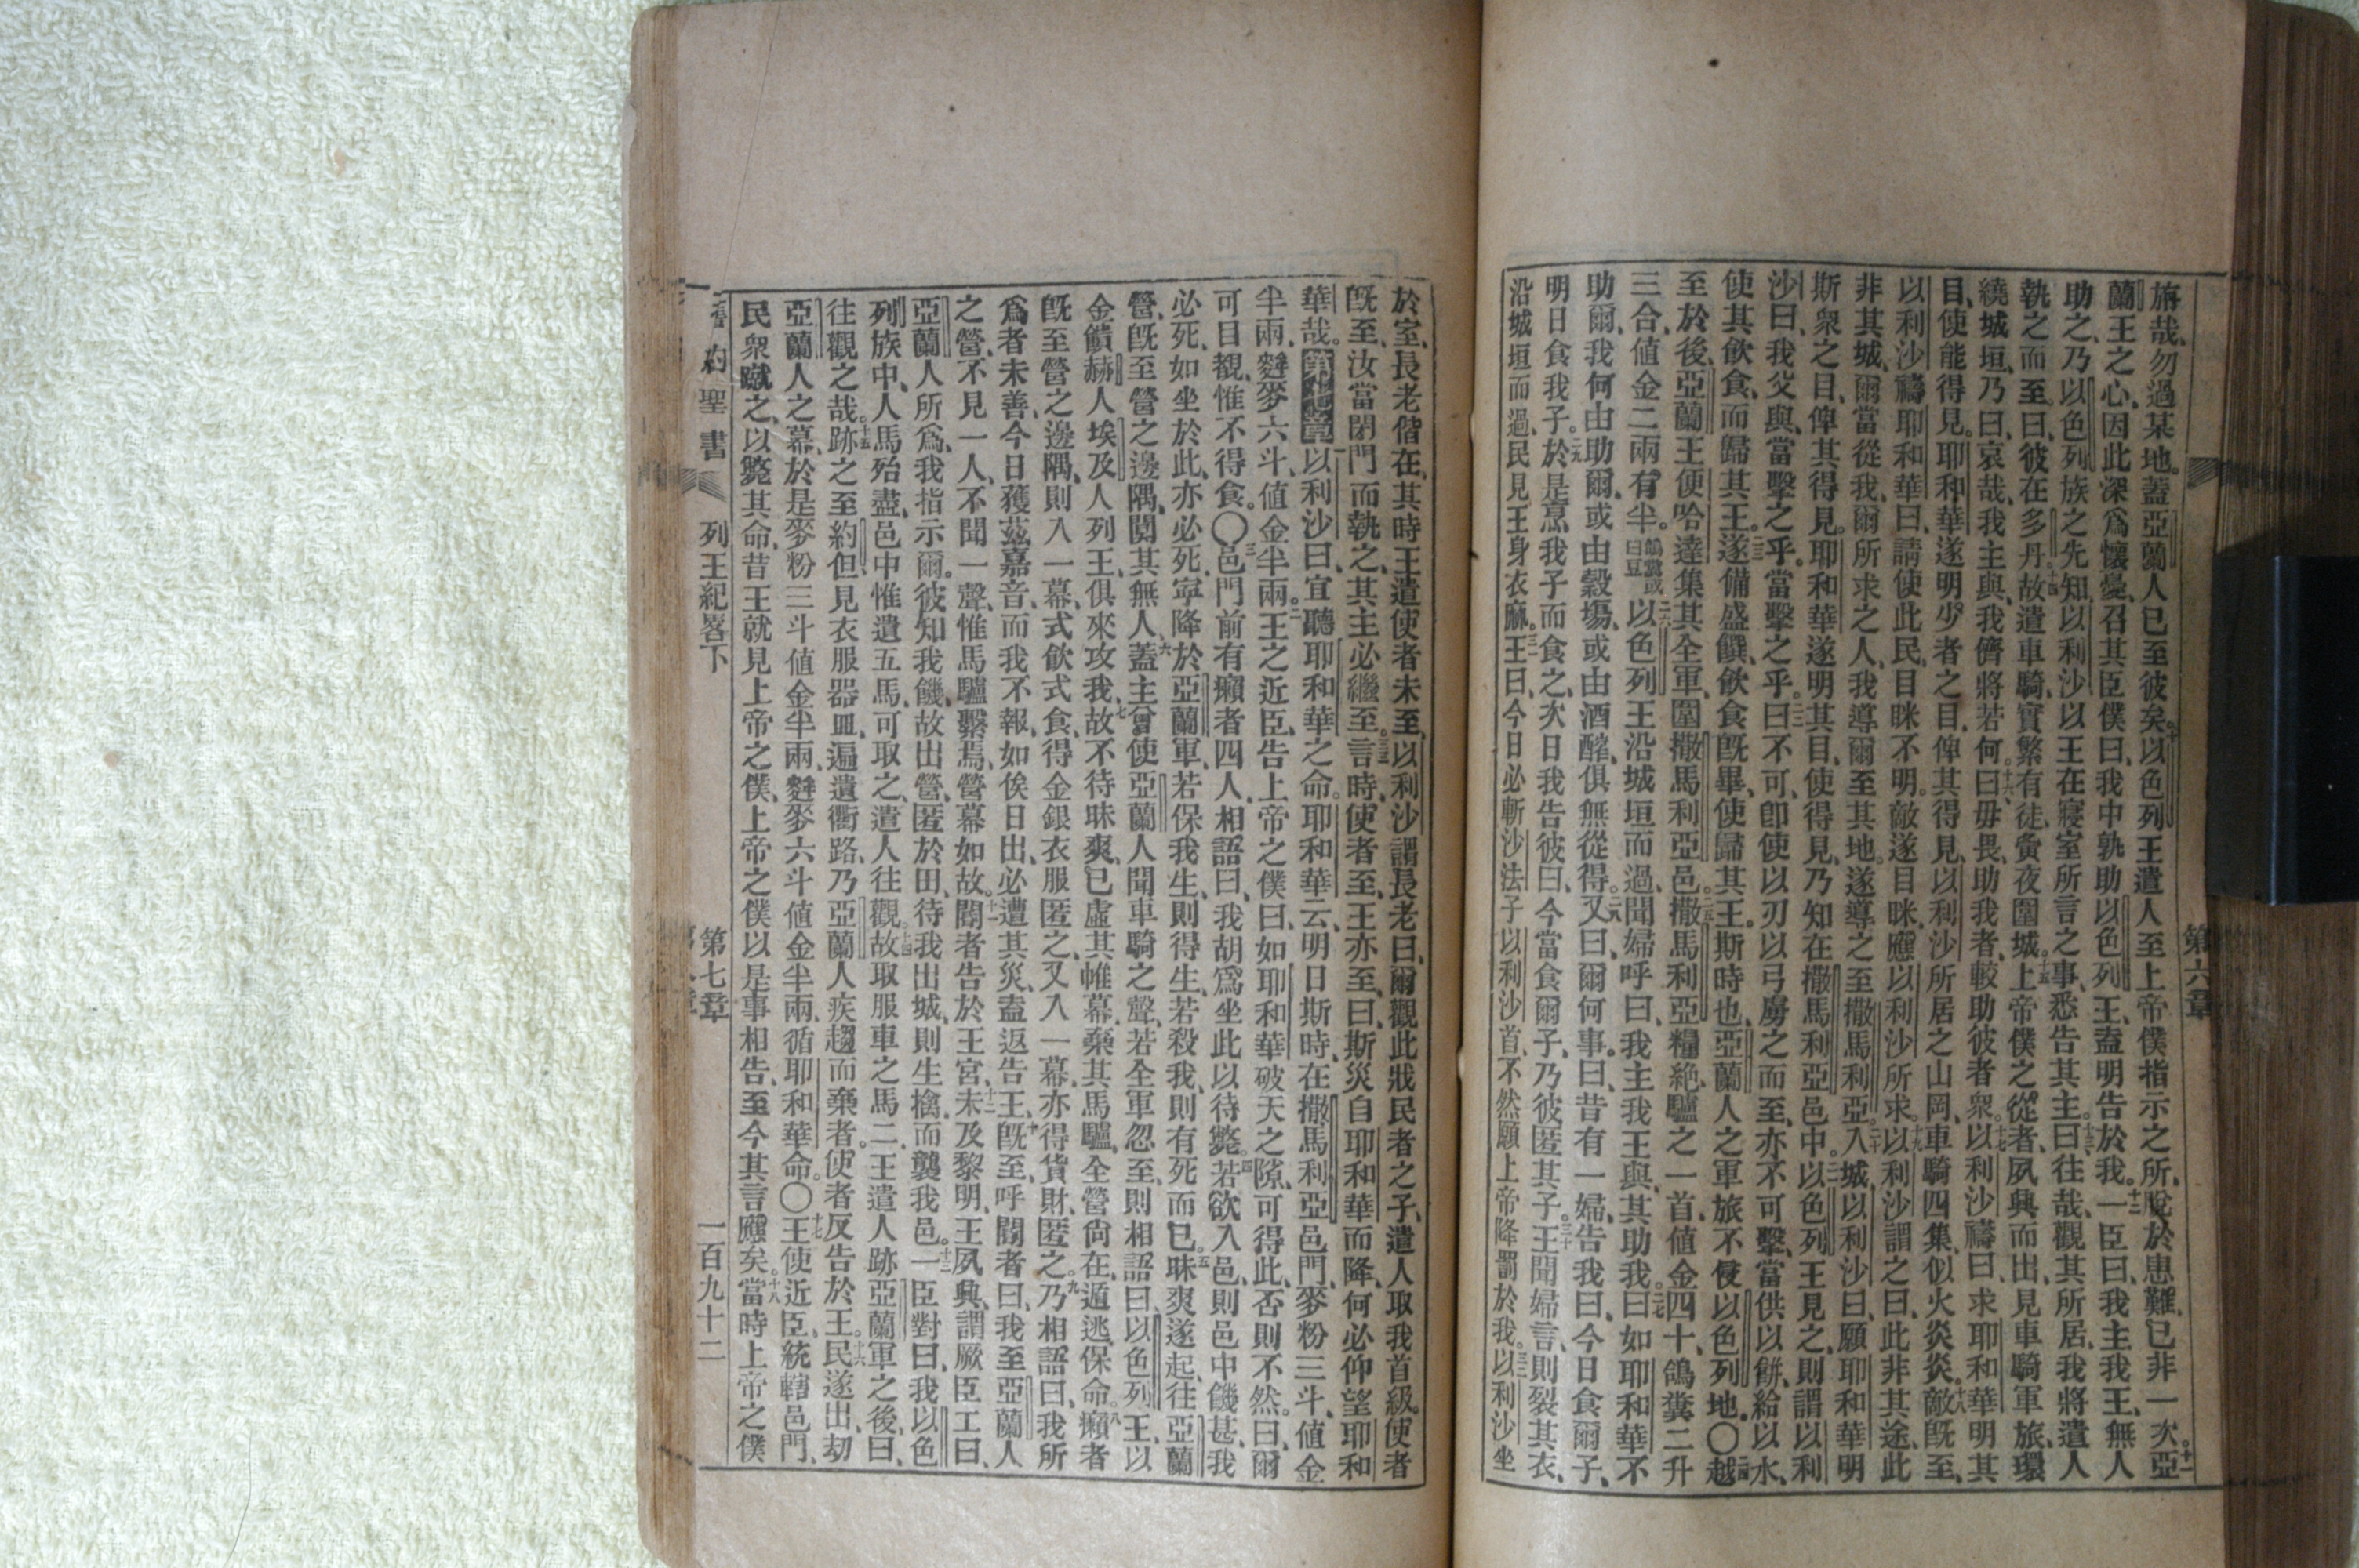 旃哉、勿過某地。蓋亞蘭人已至彼矣。十以色列王遣人至上帝僕指示之所、脫於患難、已非一次。十一亞
蘭王之心、因此深爲懷憂、召其臣僕曰、我中孰助以色列王、盍明告於我。十二一臣曰、我主我王、無人
助之、乃以色列族之先知、以利沙、以王在寢室所言之事、悉告其主。十三曰、往哉、觀其所居、我將遣人
執之而至、曰、彼在多丹。十四故遣車騎、實繁有徒、夤夜圍城。十五上帝僕之從者、夙興而出、見車騎軍旅、環
繞城垣、乃曰、哀哉、我主與、我儕將若何。十六曰、毋畏、助我者、較助彼者衆。十七以利沙禱曰、求耶和華明其
目、使能得見。耶和華遂明少者之目、俾其得見、以利沙所居之山岡、車騎四集、似火炎炎。十八敵旣至、
以利沙禱耶和華曰、請使此民、目眯不明。敵遂目眯、應以利沙所求。十九以利沙謂之曰、此非其途、此
非其城、爾當從我、爾所求之人、我導爾至其地。遂導之至撒馬利亞。二十入城、以利沙曰、願耶和華明
斯衆之目、俾其得見。耶和華遂明其目、使得見、乃知在撒馬利亞邑中。二一以色列王見之、則謂以利
沙曰、我父與、當擊之乎、當擊之乎。二二曰、不可、卽使以刃以弓虜之而至、亦不可擊、當供以餅、給以水、
使其飮食、而歸其王。二三遂備盛饌、飮食旣畢、使歸其王。斯時也、亞蘭人之軍旅、不侵以色列地。〇二四越
至於後、亞蘭王便哈達集其全軍、圍撒馬利亞邑。二五撒馬利亞糧絶、驢之一首、値金四十、鴿糞二升
三合、値金二兩有半。鴿糞或曰豆二六以色列王沿城垣而過、聞婦呼曰、我主我王與、其助我。二七曰、如耶和華不
助爾、我何由助爾、或由穀塲、或由酒醡、俱無從得。二八又曰、爾何事。曰、昔有一婦、告我曰、今日食爾子、
明日食我子。二九於是烹我子而食之、次日我告彼曰、今當食爾子、乃彼匿其子。三十王聞婦言、則裂其衣、
沿城垣而過、民見王身衣麻。三一王曰、今日必斬沙法子以利沙首、不然、願上帝降罰於我。三二以利沙坐
於室、長老偕在、其時王遣使者未至、以利沙謂長老曰、爾觀此戕民者之子、遣人取我首級。使者
旣至、汝當閉門而執之、其主必繼至。三三言時、使者至、王亦至、曰、斯災自耶和華而降、何必仰望耶和
華哉。第七章以利沙曰、宜聽耶和華之命。耶和華云、明日斯時、在撒馬利亞邑門、麥粉三斗、値金
半兩、麰麥六斗、値金半兩。二王之近臣、告上帝之僕曰、如耶和華破天之隙、可得此、否則不然。曰、爾
可目覩、惟不得食。〇三邑門前有癩者四人、相語曰、我胡爲坐此以待斃。四若欲入邑、則邑中饑甚、我
必死、如坐於此、亦必死、寧降於亞蘭軍、若保我生、則得生、若殺我、則有死而已。五昧爽遂起、往亞蘭
營、旣至營之邊隅、闃其無人。六蓋主曾使亞蘭人聞車騎之聲、若全軍忽至、則相語曰、以色列王、以
金饋赫人埃及人列王、俱來攻我。七故不待昧爽、已虛其帷幕、棄其馬驢、全營尙在、遁逃保命。八癩者
旣至營之邊隅、則入一幕、式飮式食、得金銀衣服匿之、又入一幕、亦得貨財、匿之。九乃相語曰、我所
爲者未善、今日獲茲嘉音、而我不報、如俟日出、必遭其災、盍返告王。十旣至、呼閽者曰、我至亞蘭人
之營、不見一人、不聞一聲、惟馬驢繫焉、營幕如故。十一閽者告於王宮。十二未及黎明、王夙興、謂厥臣工曰、
亞蘭人所爲、我指示爾。彼知我饑、故出營、匿於田、待我出城、則生擒而襲我邑。十三一臣對曰、我以色
列族中、人馬殆盡、邑中惟遺五馬、可取之、遣人往觀。十四故取服車之馬二、王遣人跡亞蘭軍之後、曰、
往觀之哉。十五跡之至約但、見衣服器皿、遍遺衢路、乃亞蘭人疾趨而棄者。使者反告於王。十六民遂出、刧
亞蘭人之幕、於是麥粉三斗値金半兩、麰麥六斗値金半兩、循耶和華命。〇十七王使近臣、統轄邑門、
民衆蹴之、以斃其命、昔王就見上帝之僕、上帝之僕以是事相告、至今其言應矣。十八當時上帝之僕
第六章
舊約聖書 列王紀畧下 第七章 一百九十二